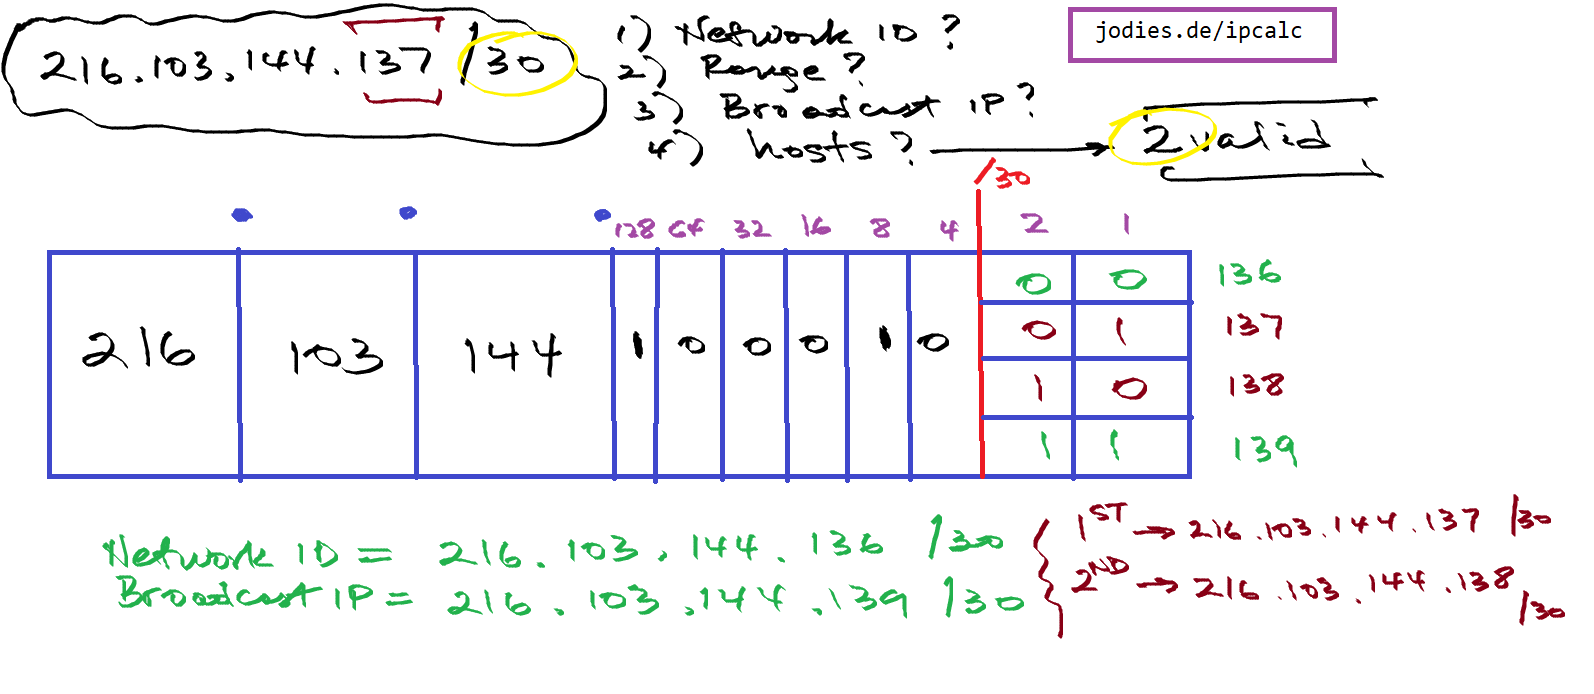 216.103.144.137 /30
1) Network ID ?
2) Range ?
3) Broadcast IP ?
4) hosts ?
2 valid
jodies.de/ipcalc
/30
128 64 32 16 8 4 2 1
216 103 144 1 0 0 0 1 0
0 0 136
0 1 137
1 0 138
1 1 139
Network ID = 216.103.144.136 /30
Broadcast IP = 216.103.144.139 /30
1ST → 216.103.144.137 /30
2ND → 216.103.144.138 /30